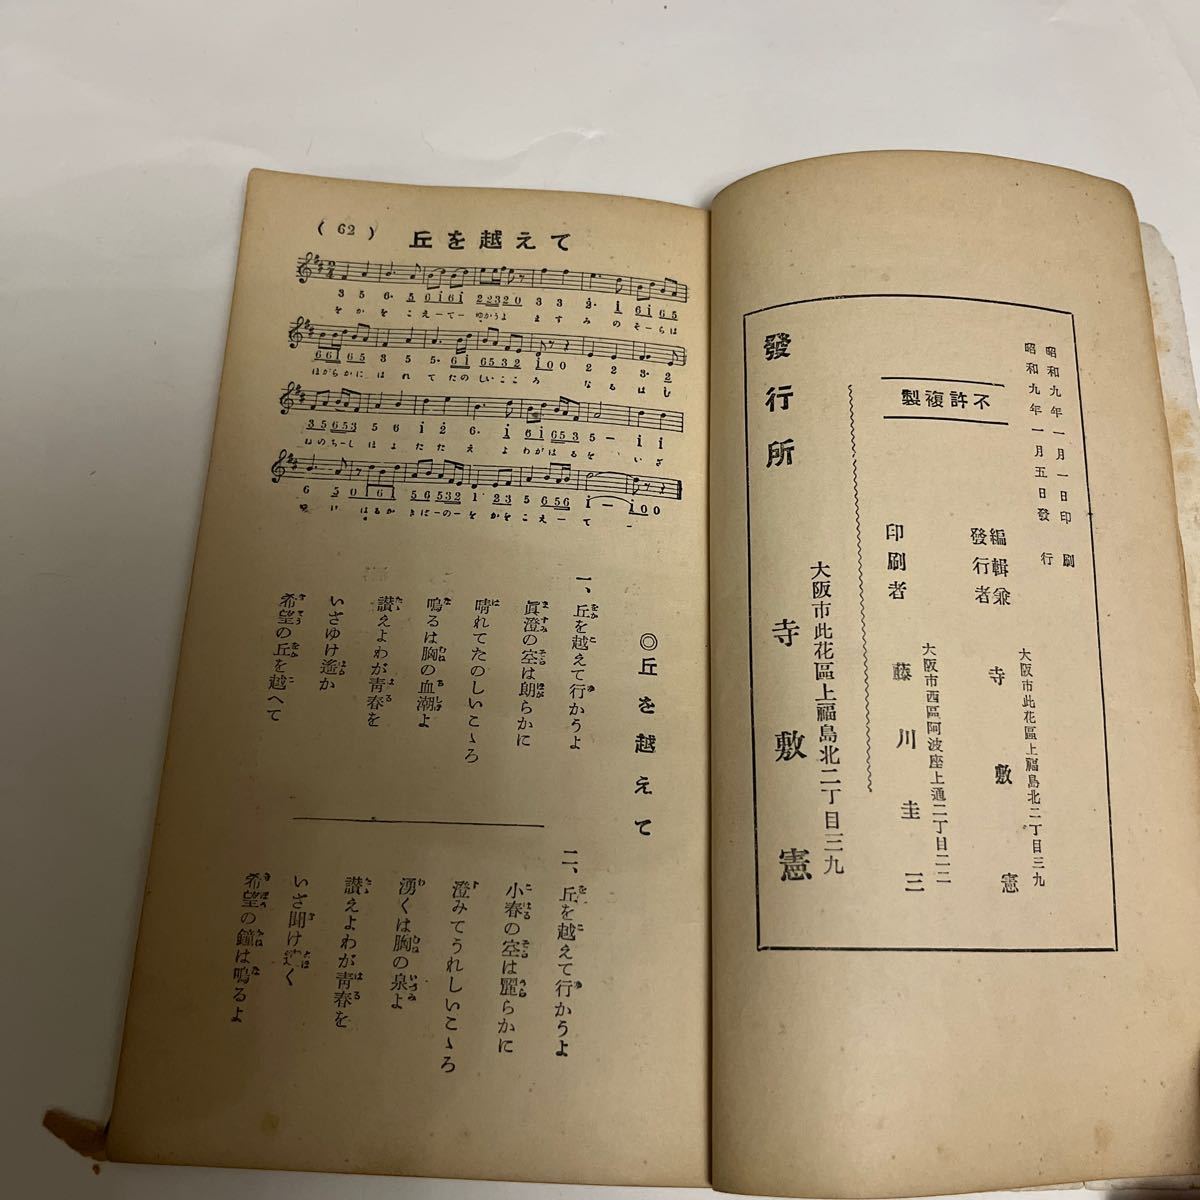 ( 62 )
丘を越えて
3 5 6· 5 6 i 6 i 2 2 3 2 0 3 3 2· i i 6 i 6 5
をかをこえーてーゆかうよ ますみのそーらは
6 6 i 6 5 3 5 5· 6 i 6 5 3 2 i 0 0 2 2 3· 2
ほがらかに はれてたのしいこころ なるはむ
3 5 6 5 3 5 6 i 2 6· i 6 i 6 5 3 5 ー i i
ねのちーしほよたたえよわがはるを、いざ
6 5 0 i 6 i 5 6 5 3 2 1 2 3 5 6 5 6 i ー i 0 0
はるかきばーのーをかをこえーてー
◎丘を越えて
一、丘を越えて行かうよ
眞澄の空は朗らかに
晴れてたのしいこゝろ
鳴るは胸の血潮よ
讃えよわが青春を
いざゆけ遙か
希望の丘を越へて
二、丘を越えて行かうよ
小春の空は麗らかに
澄みてうれしいこゝろ
湧くは胸の泉よ
讃えよわが青春を
いざ聞け遠く
希望の鐘は鳴るよ
昭和九年一月一日印刷
昭和九年一月五日發行
不許複製
編輯兼
發行者
大阪市此花區上福島北二丁目三九
寺敷憲
印刷者
大阪市西區阿波座上通二丁目二二
藤川圭三
發行所
大阪市此花區上福島北二丁目三九
寺敷憲